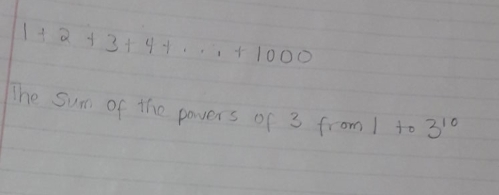 1 + 2 + 3 + 4 + . . . + 1000
The sum of the powers of 3 from 1 to 3¹⁰